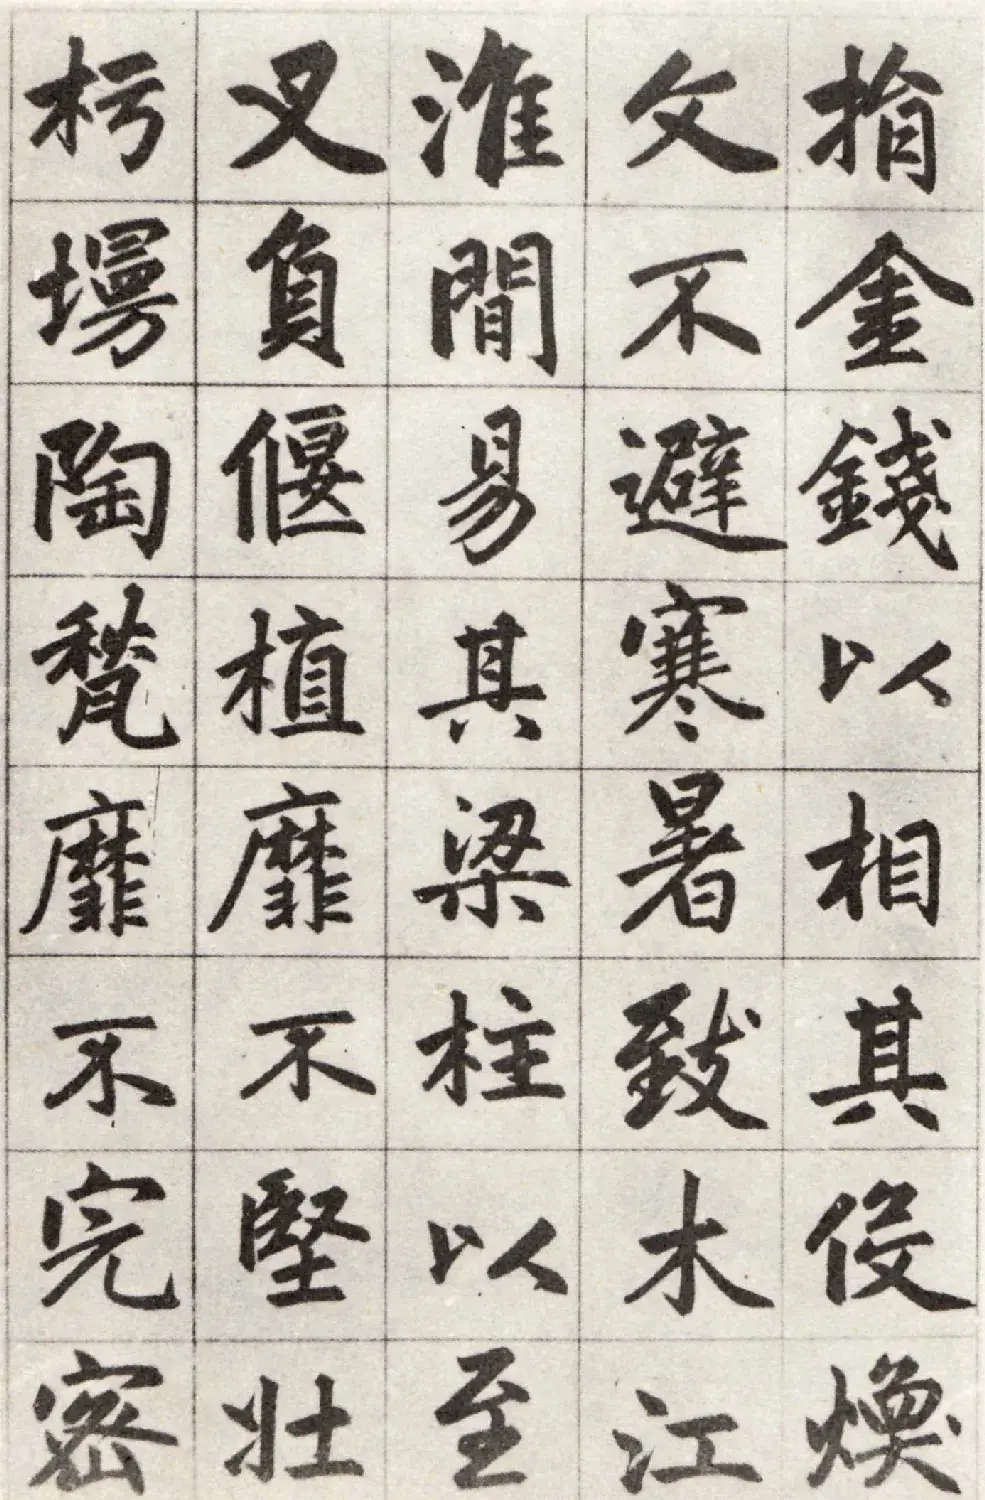 捐金錢以相其侵煥
文不避寒暑致木江
淮間易其梁柱以至
叉負偃植靡不堅壯
杇墁陶甃靡不完密